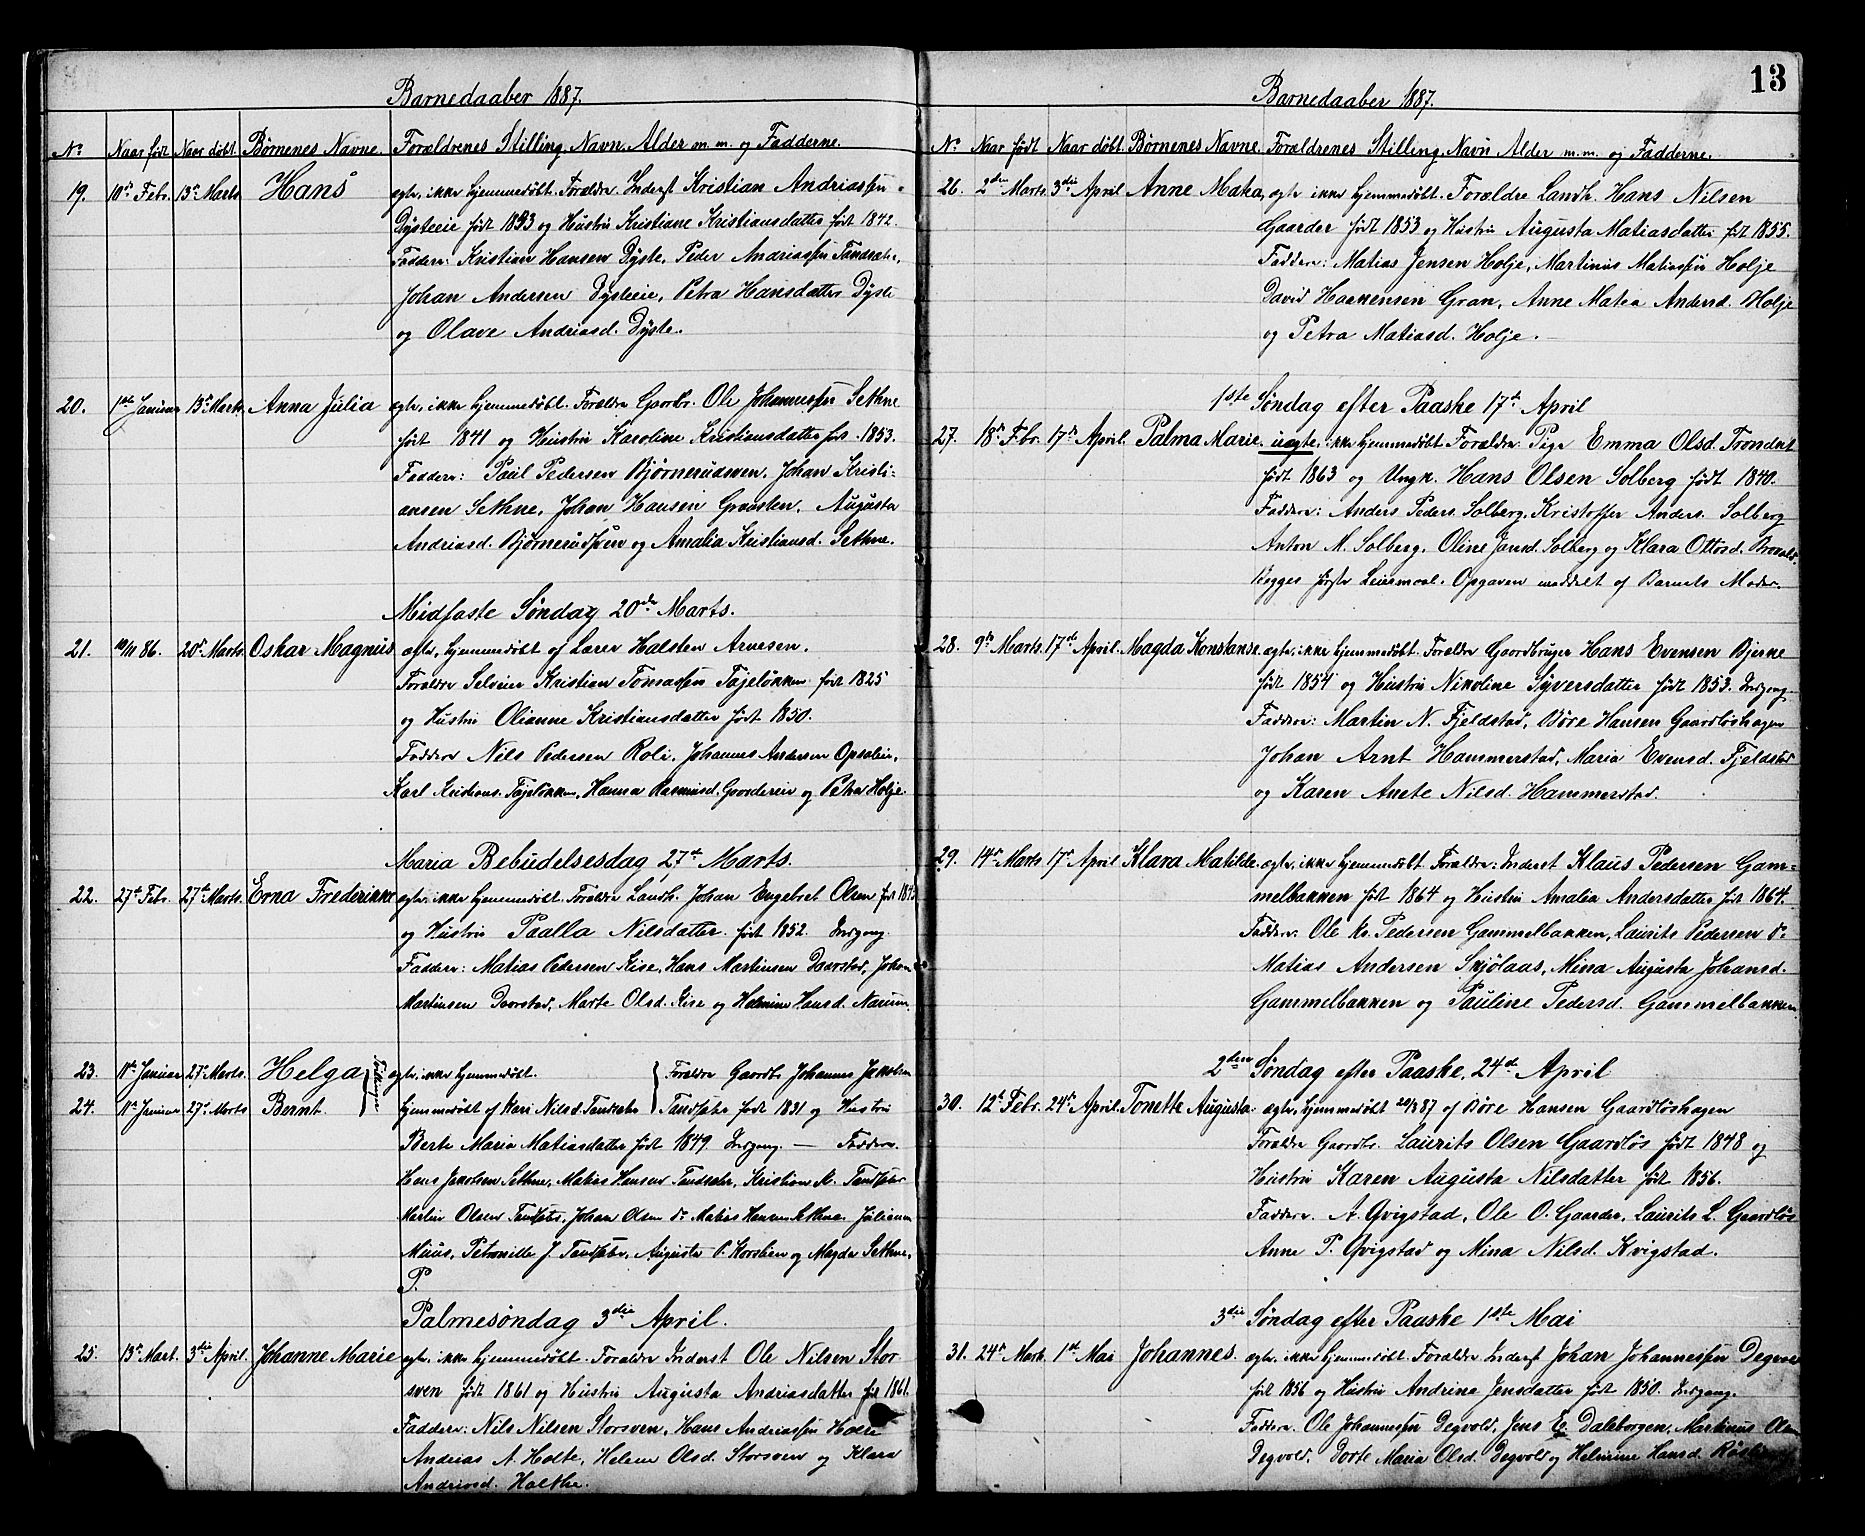 Barnedaaber 1887.
No Naar født Naar døbt. Børnenes Navne. Forældrenes Stilling, Navn, Alder m. m. og Fadderne.
19. 10de Febr. 13de Marts Hans ægte, ikke hjemmedøbt. Forældre Inderst Kristian Andriassen
Dysteeie født 1833 og Hustru Kristiane Kristiansdatter født 1842.
Faddere: Kristian Hansen Dyste, Peder Andriassen
Johan Andersen Dysteeie, Petra Hansdatter Dyste
og Olave Andriasd. Dyste.
20. 1ste Januar 13de Marts. Anna Julia ægte, ikke hjemmedøbt. Forældre Gaardbr. Ole Johannessen Sethne
født 1841 og Hustru Karoline Kristiansdatter før. 1853.
Faddere: Paul Pedersen Bjørnerudsven, Johan Kristi-
ansen Sethne, Johan Hansen Augusta
Andriasd. Bjørnerudsven og Amalia Kristiansd. Sethne.
Midfaste Søndag 20de Marts.
21. 10/11 86. 20de Marts. Oskar Magnus ægte, hjemmedøbt af Lærer Halsten Arnesen.
Forældre Selveier Kristian Tomassen Fajeløkken født 1825
og Hustru Olianne Kristiansdatter født 1850.
Faddere Nils Pedersen Roli, Johannes Andersen Opsaleie,
Karl Kristians. Fajeløkken, Hanna Rasmusd. Gaardereie og Petra Holje.
Maria Bebudelsesdag, 27de Marts.
22. 27de Febr. 27de Marts. Erna Frederikke ægte, ikke hjemmedøbt. Forældre Landh. Johan Engebret Olsen født
og Hustru Paalla Nilsdatter født 1852. Indgang.
Faddere: Matias Pedersen Kise, Hans Martinsen Daarstad, Johan
Martinsen Daarstad, Marte Olsd. Kise og Helmine Hansd. Narum.
23. 11te Januar 27de Marts. Helga Tvillinger ægte, ikke hjemmedøbt. Forældre Gaardb. Johannes Jakobsen
24. 11te Januar 27de Marts Bernt. hjemmedøbt af Kari Nilsd. Tandsæte Tandsæte født 1831 og Hustru
Berte Maria Matiasdatter født 1849. Indgang. — Faddere.
Hans Jakobsen Sethne, Matias Hansen Tandsæte, Kristian K. Tandsæte
Martin Olsen Tandsæte, Johan Olsen do Matias Hansen Sethne. Juliana
Muus, Petronille J. Tandsæte, Augusta P. Korslien og Magda Sethne.
P.
Palmesøndag 3die April.
25. 13de Mart. 3die April. Johanne Marie ægte, ikke hjemmedøbt. Forældre Inderst Ole Nilsen Stor
sven født 1861 og Hustru Augusta Andriasdatter før 1861.
Faddere: Nils Nilsen Storsven, Hans Andriassen Holte
Andreas A. Holte, Helene Olsd. Storsven og Klara
Andriasd. Holthe.
13
Barnedaaber 1887.
No Naar født Naar døbt. Børnenes Navne. Forældrenes Stilling, Navn, Alder m. m. og Fadderne.
26. 2den Marts. 3die April Anne Matea, ægte ikke hjemmedøbt. Forældre Landh. Hans Nilsen
Gaarder født 1853 og Hustru Augusta Matiasdatter født 1855.
Faddere: Matias Jensen Holje, Martinus Matiassen Holje
David Haakensen Gran, Anne Matea Andersd. Holje
og Petra Matiasd. Holje.
1ste Søndag efter Paaske 17de April
27. 18de Fbr. 17de April. Palma Marie. uægte, ikke hjemmedøbt Forældre: Pige Emma Olsd.
født 1863 og Ungk. Hans Olsen Solberg født 1840.
Faddere: Anders Peders. Solberg, Kristoffer Anders. Solberg
Anton M. Solberg, Oline Jansd. Solberg og Klara Ottosd.
Begges første Leiermaal. Opgaven meddelt af Barnets Moder.
28. 9de Marts. 17de April. Magda Konstanse. ægte, ikke hjemmedøbt. Forældre Gaardbruger Hans Evensen Bjerke
født 1854 og Hustru Nikoline Syversdatter født 1853. Indgang.
Faddere: Martin N. Fjeldstad, Børe Hansen Gaardløshagen
Johan Arnt Hammerstad, Maria Evensd. Fjeldstad
og Karen Anete Nilsd. Hammerstad.
29. 14de Marts 17de April Klara Matilde. ægte, ikke hjemmedøbt Forældre: Inderst Klaus Pedersen Gam-
melbakken født 1864 og Hustru Amalia Andersdatter født 1864.
Faddere: Ole Kr. Pedersen Gammelbakken, Laurits Pedersen do
Matias Andersen Skjølaas, Mina Augusta Johansd.
Gammelbakken og Pauline Pedersd. Gammelbakken
2den Søndag efter Paaske, 24de April
30. 12te Febr. 24de April. Tonette Augusta. ægte, hjemmedøbt 20/2 87 af Børe Hansen Gaardløshagen
Forældre Gaardbr. Laurits Olsen Gaardløs født 1848 og
Hustru Karen Augusta Nilsdatter født 1856.
Faddere. A. Qvigstad, Ole O. Gaarder, Laurits L. Gaardløs
Anne P. Qvigstad og Mina Nilsd. Kvigstad.
3die Søndag efter Paaske 1ste Mai
31. 24de Marts. 1ste Mai Johannes. ægte, ikke hjemmedøbt. Forældre Inderst Johan Johannessen Degvold
født 1856 og Hustru Andrine Jensdatter født 1850. Indgang.
Faddere. Ole Johannessen Degvold, Jens E. Daleborgen, Martinus Olsen
Degvold, Dorte Maria Olsd. Degvold og Helmine Hansd.